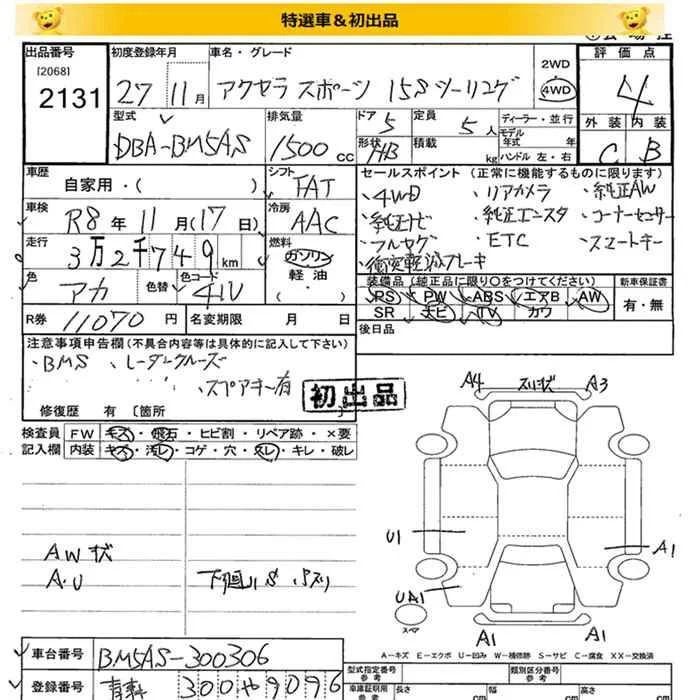 特選車＆初出品
出品番号
[2068]
2131
初度登録年月
27 11月
車名・グレード
アクセラ スポーツ 15S ツーリング
2WD
4WD
評価点
4
外装 内装
C B
型式
DBA-BM5AS
排気量
1500 cc
ドア 5
形状 HB
定員 5人
積載 kg
ディーラー・並行
モデル年式 年
ハンドル 左・右
車歴
自家用・( )
シフト
FAT
車検
R8年11月(17日)
冷房
AAC
走行
3万2千749km
燃料
ガソリン
軽油
( ・ )
色
アカ
色替
色コード
41V
R券 11070 円
名変期限 月 日
セールスポイント (正常に機能するものに限ります)
・4WD ・リアカメラ ・純正AW
・純正ナビ ・純正エアロ ・コーナーセンサー
・フルセグ ・ETC ・スマートキー
・衝突軽減ブレーキ
装備品 (純正品に限り○をつけてください)
PS PW ABS エアB AW
SR ナビ TV カワ
新車保証書
有・無
後日品
注意事項申告欄(不具合内容等は具体的に記入して下さい)
・BMS ・レーダークルーズ
・スペアキー有
初出品
修復歴 有 [箇所 ]
検査員記入欄
FW キズ・飛石・ヒビ割・リペア跡・×要
内装 キズ・汚レ・コゲ・穴・スレ・キレ・破レ
AWキズ
A・U
A4 A3
U1 A1
UA1
スペア
A1 A1
A－キズ E－エクボ U－凹み W－補修跡 S－サビ C－腐食 XX－交換済
車台番号 BM5AS-300306
登録番号 300 や 9096
型式指定番号
参考
類別区分番号
参考
車庫証明用
参考
長さ cm 幅 cm 高さ cm